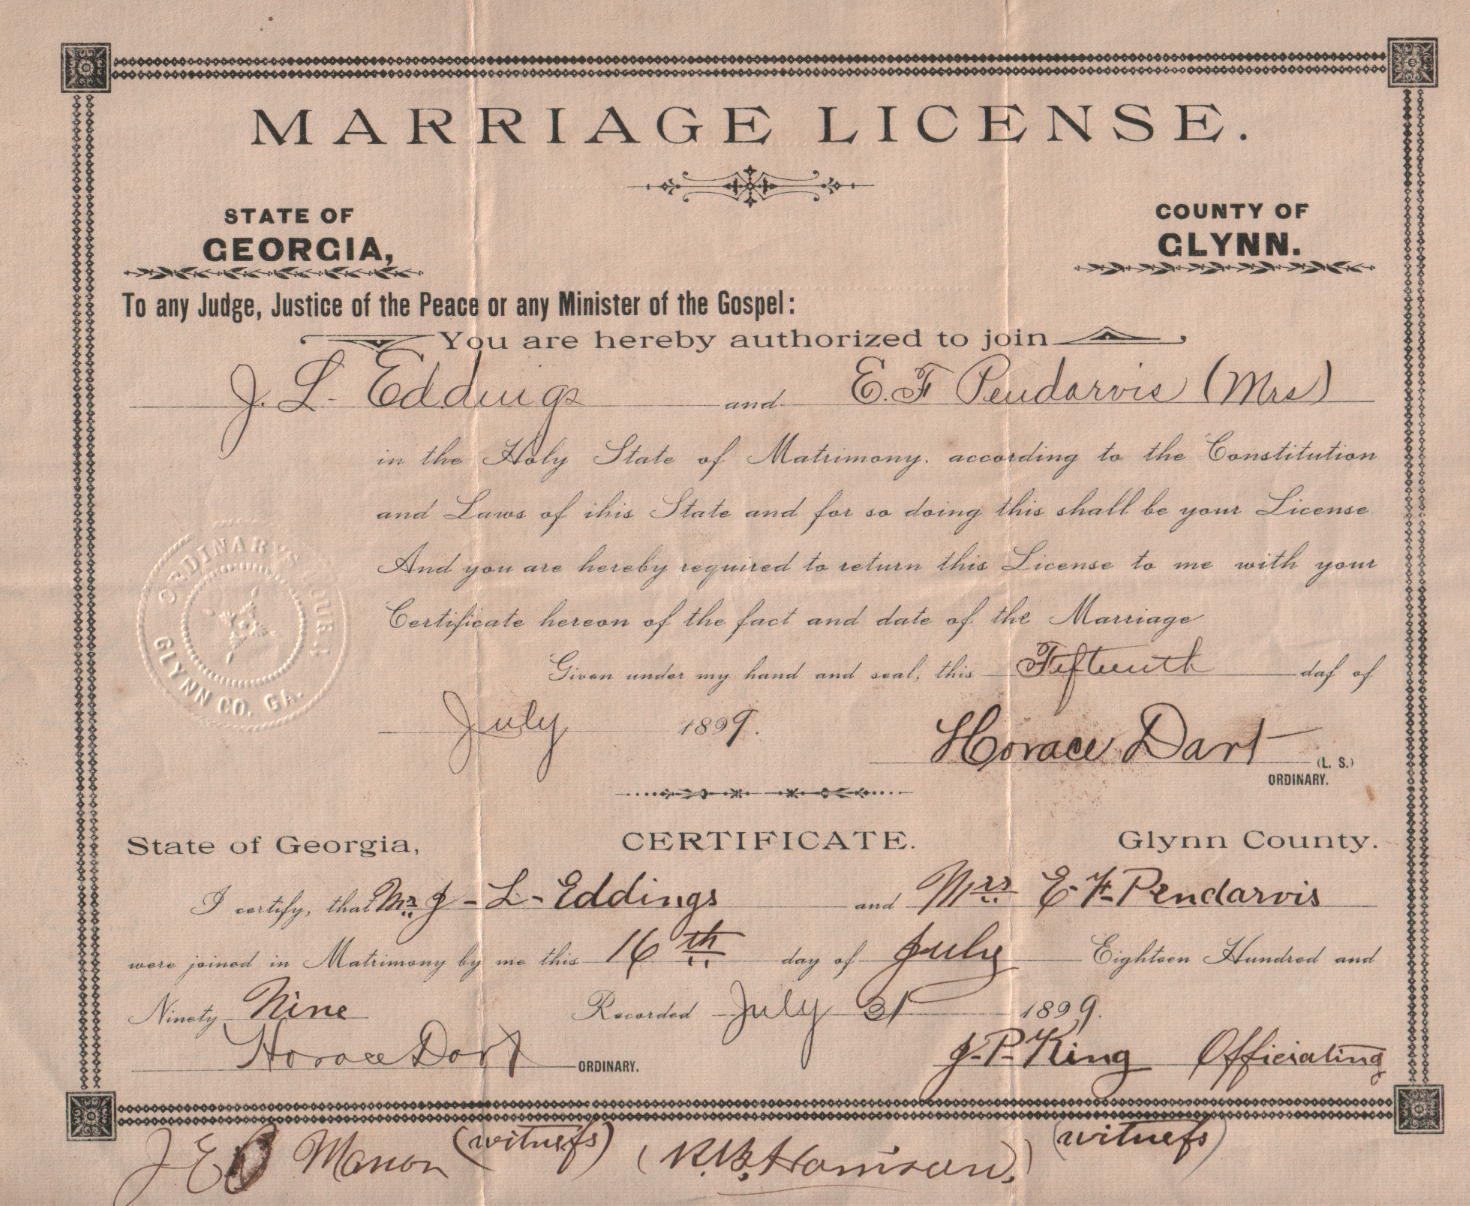 MARRIAGE LICENSE.
STATE OF
GEORGIA,
COUNTY OF
GLYNN.
To any Judge, Justice of the Peace or any Minister of the Gospel:
You are hereby authorized to join
J. L. Eddings and E. F Pendarvis (Mrs)
in the Holy State of Matrimony. according to the Constitution
and Laws of ihis State and for so doing this shall be your License
And you are hereby required to return this License to me with your
Certificate hereon of the fact and date of the Marriage
Given under my hand and seal, this Fifteenth daf of
July 1899.
Horace Dart (L. S.)
ORDINARY.
ORDINARY'S COURT
GLYNN CO. GA.
State of Georgia, CERTIFICATE. Glynn County.
I certify, that Mr J - L - Eddings and Mrs E - F - Pendarvis
were joined in Matrimony by me this 16th day of July Eighteen Hundred and
Ninety Nine Recorded July 31 1899.
Horace Dart ORDINARY. J - P - King Officiating
J E Manon (witness) (R. B. Harrison.) (witness)